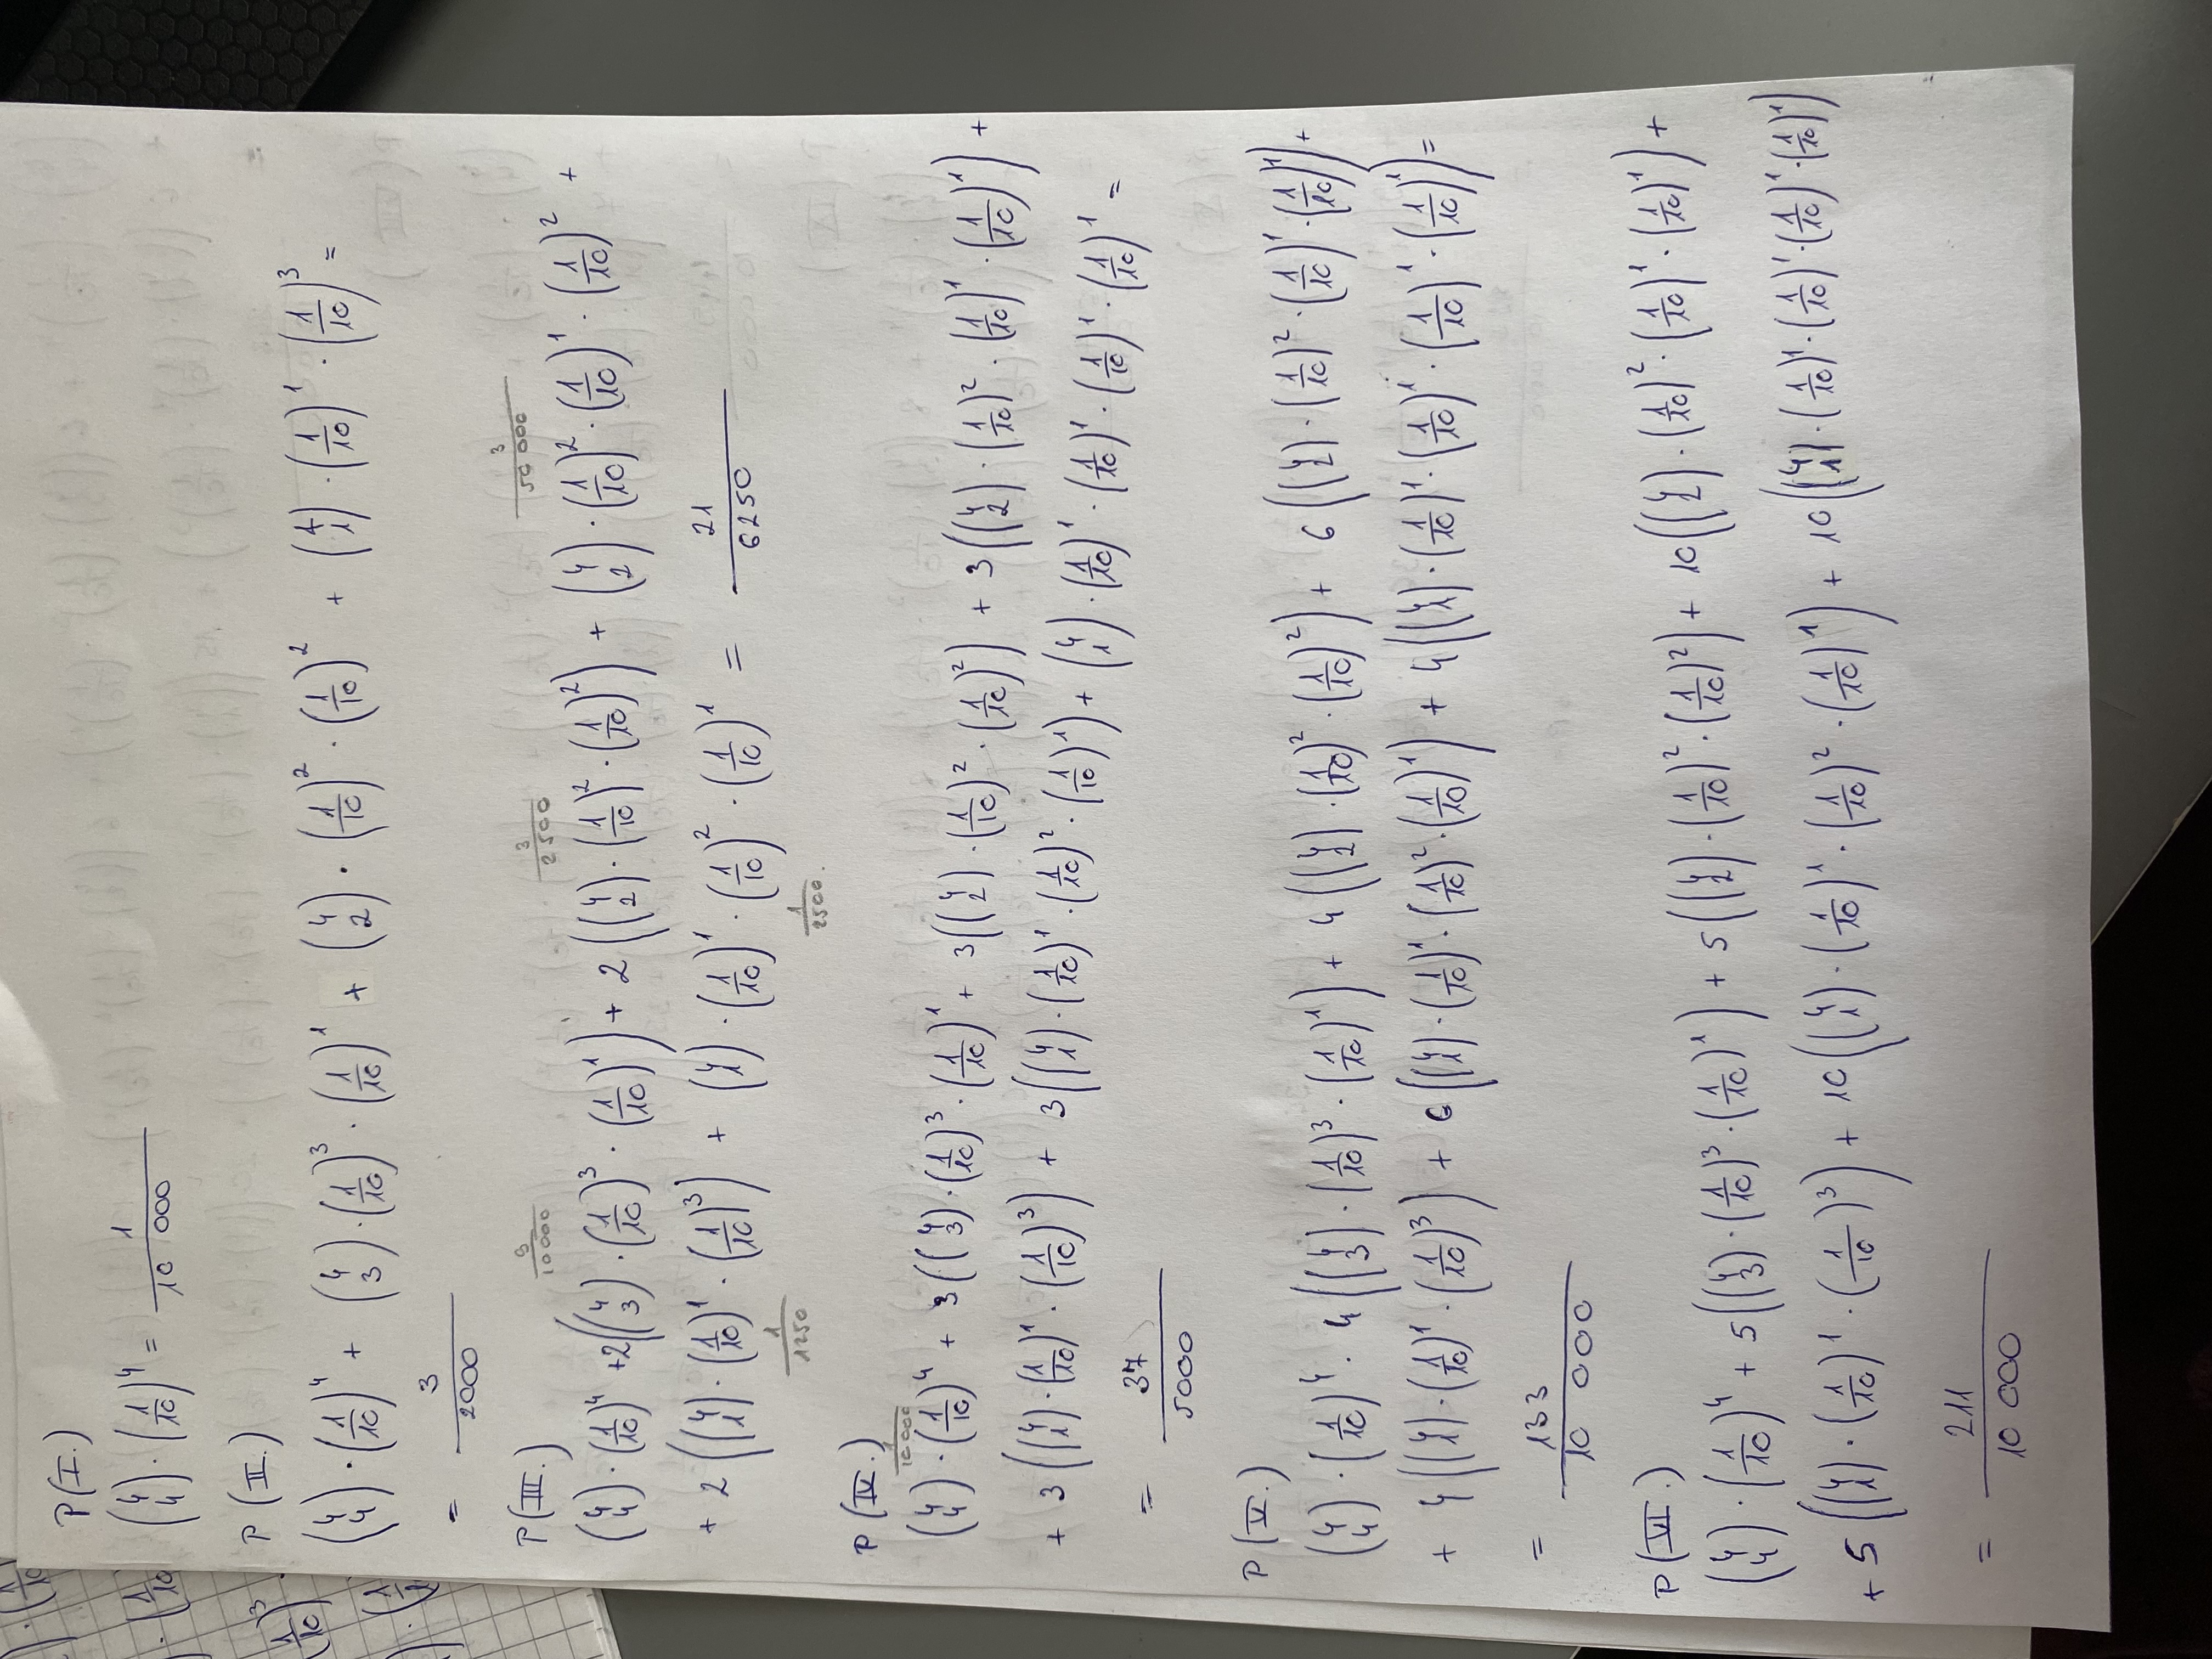 P(I.)
(4 4) · (1/10)^4 = 1/10 000
P(II.)
(4 4) · (1/10)^4 + (4 3) · (1/10)^3 · (1/10)^1 + (4 2) · (1/10)^2 · (1/10)^2 + (4 1) · (1/10)^1 · (1/10)^3 =
= 3/2000
P(III.)
3/10000 3/2500 3/50 000
(4 4) · (1/10)^4 + 2((4 3) · (1/10)^3 · (1/10)^1) + 2((4 2) · (1/10)^2 · (1/10)^2) + (4 2) · (1/10)^2 · (1/10)^1 · (1/10)^2 +
+ 2((4 1) · (1/10)^1 · (1/10)^3) + (4 1) · (1/10)^1 · (1/10)^2 · (1/10)^1 = 21/6250
1/1250 1/2500.
P(IV.)
1/10000
(4 4) · (1/10)^4 + 3((4 3) · (1/10)^3 · (1/10)^1 + 3((4 2) · (1/10)^2 · (1/10)^2) + 3((4 2) · (1/10)^2 · (1/10)^1 · (1/10)^1) +
+ 3((4 1) · (1/10)^1 · (1/10)^3) + 3((4 1) · (1/10)^1 · (1/10)^2 · (1/10)^1) + (4 1) · (1/10)^1 · (1/10)^1 · (1/10)^1 · (1/10)^1 =
= 37/5000
P(V.)
(4 4) · (1/10)^4 · 4((4 3) · (1/10)^3 · (1/10)^1) + 4((4 2) · (1/10)^2 · (1/10)^2) + 6((4 2) · (1/10)^2 · (1/10)^1 · (1/10)^1) +
+ 4((4 1) · (1/10)^1 · (1/10)^3) + 6((4 1) · (1/10)^1 · (1/10)^2 · (1/10)^1) + 4((4 1) · (1/10)^1 · (1/10)^1 · (1/10)^1 · (1/10)^1) =
= 133/10 000
P(VI.)
(4 4) · (1/10)^4 + 5((4 3) · (1/10)^3 · (1/10)^1) + 5((4 2) · (1/10)^2 · (1/10)^2) + 10((4 2) · (1/10)^2 · (1/10)^1 · (1/10)^1) +
+ 5((4 1) · (1/10)^1 · (1/10)^3) + 10((4 1) · (1/10)^1 · (1/10)^2 · (1/10)^1) + 10((4 1) · (1/10)^1 · (1/10)^1 · (1/10)^1 · (1/10)^1)
= 211/10 000